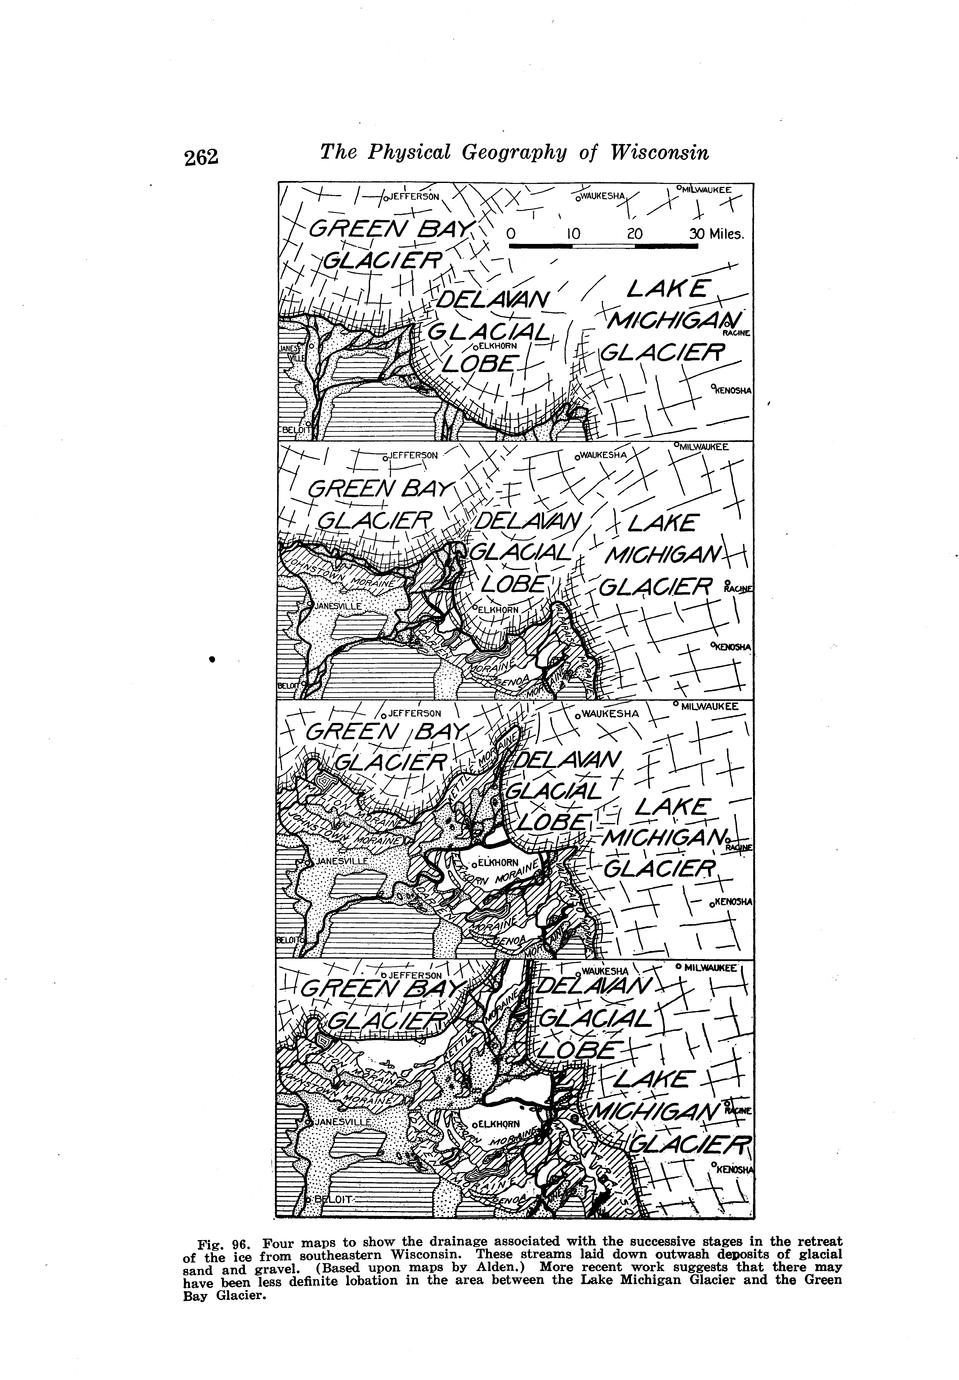 262
The Physical Geography of Wisconsin
JEFFERSON
WAUKESHA
MILWAUKEE
GREEN BAY
GLACIER
0 10 20 30 Miles.
DELAVAN
GLACIAL
LOBE
ELKHORN
LAKE
MICHIGAN
GLACIER
RACINE
KENOSHA
JANES
VILLE
BELOIT
JEFFERSON
WAUKESHA
MILWAUKEE
GREEN BAY
GLACIER
DELAVAN
GLACIAL
LOBE
LAKE
MICHIGAN
GLACIER
RACINE
JOHNSTOWN MORAINE
JANESVILLE
ELKHORN
KENOSHA
DARIEN
MORAINE
GENOA
MORAINE
BELOIT
JEFFERSON
WAUKESHA
MILWAUKEE
GREEN BAY
GLACIER
KETTLE MORAINE
DELAVAN
GLACIAL
LOBE
LAKE
MICHIGAN
GLACIER
RACINE
MILTON MORAINE
JOHNSTOWN MORAINE
JANESVILLE
ELKHORN
ELKHORN MORAINE
KENOSHA
DARIEN
MORAINE
GENOA
MORAINE
BELOIT
JEFFERSON
WAUKESHA
MILWAUKEE
GREEN BAY
GLACIER
DELAVAN
GLACIAL
LOBE
KETTLE MORAINE
LAKE
MICHIGAN
GLACIER
RACINE
MILTON
MORAINE
JOHNSTOWN MORAINE
JANESVILLE
ELKHORN
ELKHORN MORAINE
KENOSHA
DARIEN
MORAINE
GENOA
BELOIT
Fig. 96. Four maps to show the drainage associated with the successive stages in the retreat
of the ice from southeastern Wisconsin. These streams laid down outwash deposits of glacial
sand and gravel. (Based upon maps by Alden.) More recent work suggests that there may
have been less definite lobation in the area between the Lake Michigan Glacier and the Green
Bay Glacier.